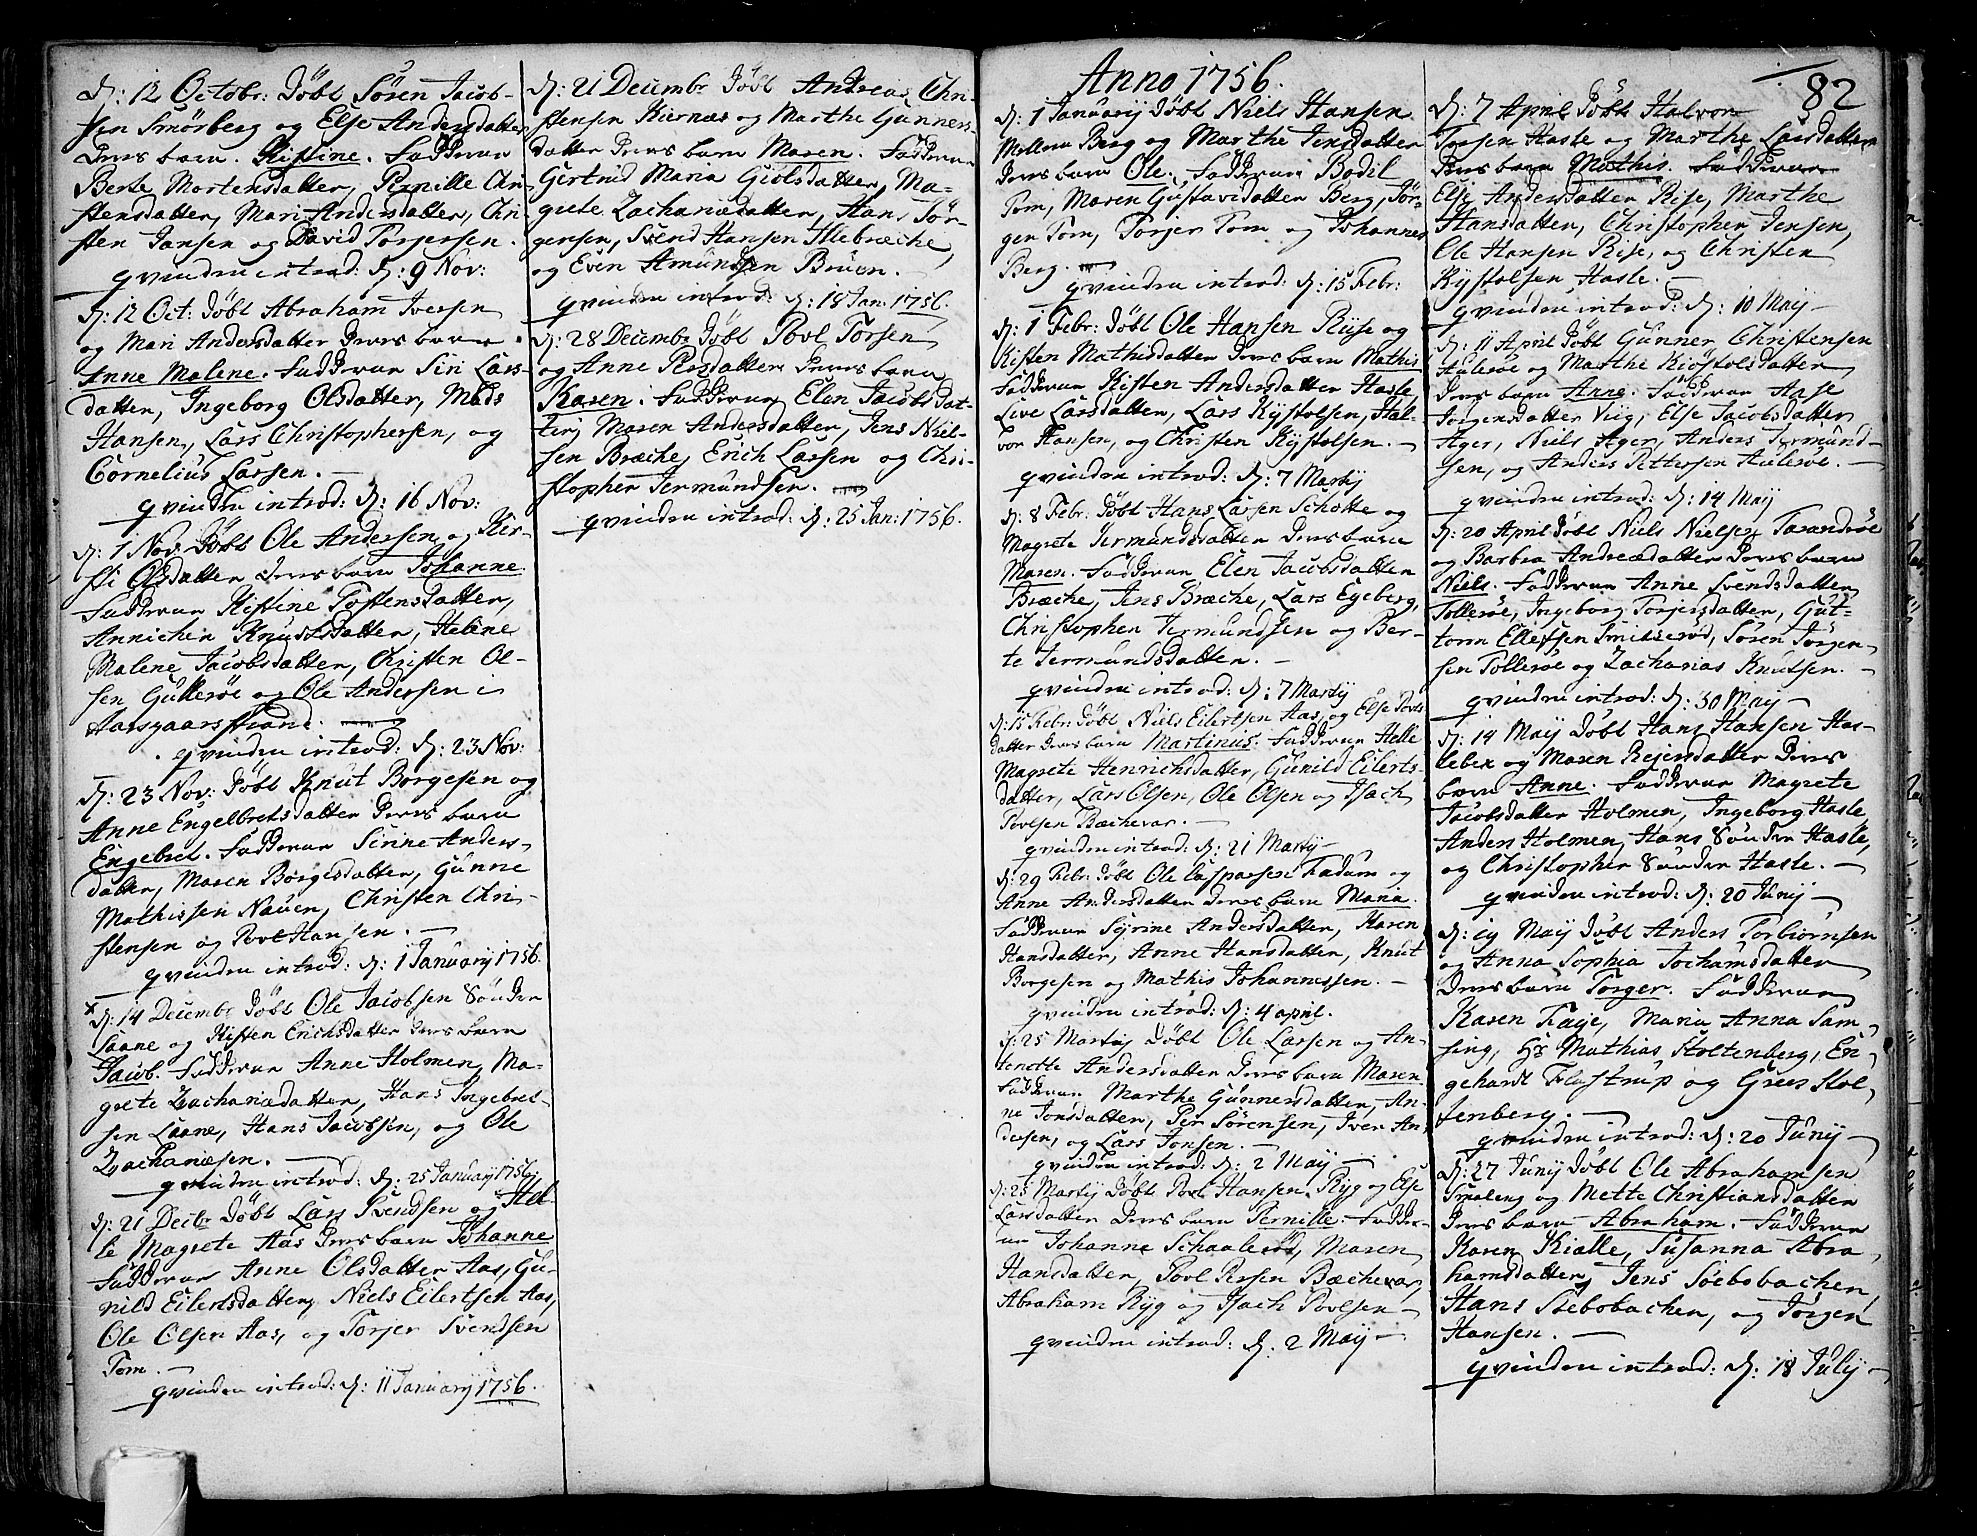 d: 12 Octobr: Döbt Sören Jacob-
sen Smörberg og Else Andersdatter
Deres barn. Kistine. Fadderne
Berte Mortensdatter, Pernille Chri-
stensdatter, Mari Andersdatter, Chri-
sten Jansen og David Torgersen.
qvinden introd: d: 9 Nov:
d: 12 Oct: Döbt Abraham Iversen
og Mari Andersdatter Deres barn
Anne Malene. Fadderne Siri Lars-
datter, Ingeborg Olsdatter, Mads
Hansen, Lars Christophersen, og
Cornelius Larsen.
qvinden introd: d: 16 Nov:
d: 1 Nov: Döbt Ole Andersen og Kir-
sti Olsdatter deres barn Johanne.
Fadderne Kistine Tostensdatter,
Annichen Knutsdatter, Helene
Malene Jacobsdatter, Christen Ol-
sen Gulleröe og Ole Andersen i
Aasgaarsstrand.
qvinden introd: d: 23 Nov:
d: 23 Nov: Döbt Knut Borgesen og
Anne Engelbretsdatter Deres barn
Engebret. Fadderne Sinne Anders-
datter, Maren Borgesdatter, Gunne
Mathissen Nauen, Christen Chri-
stensen og Povl Hansen.
qvinden introd: d: 1 January 1756.
x
d: 14 Decembr Döbt Ole Jacobsen Sönder
Laane og Kisten Erichsdatter Deres barn
Jacob. Fadderne Anne Holmen, Ma-
grete Zachariædatter, Hans Ingebret-
sen Laane, Hans Jacobsen, og Ole
Zachariæsen.
qvinden introd: d: 25 January 1756.
d: 21 Decbr Döbt Lars Svendsen og Hel-
le Magrete Aas Deres barn Johanne
Fadderne Anne Olsdatter Aas, Gu-
nild Eilertsdatter, Niels Eilertsen Aas,
Ole Olsen Aas, og Torjer Svendsen
Tom.
qvinden introd: d: 11 January 1756.
d: 21 Decembr Döbt Andreas Chri-
stensen Kiernæs og Marthe Gunners-
datter Deres barn Maren. Fadderne
Giertrud Maria Giölsdatter, Ma-
grete Zachariædatter, Hans Jör-
gensen, Svend Hansen Illebræche,
og Even Amundsen Bruen.
qvinden introd: d: 18 Jan: 1756.
d: 28 Decembr Döbt Povl Torsen
og Anne Persdatter Deres barn
Karen. Fadderne Elen Jacobsdat-
ter, Maren Andersdatter, Jens Niel-
sen Bræche, Erich Larsen og Chri-
stopher Jermundsen.
qvinden introd: d: 25 Jan: 1756.
Anno 1756.
d: 1 Januarij Döbt Niels Hansen
Mellem Berg og Marthe Jensdatter
Deres barn Ole. Fadderne Bodil
Tom, Maren Gustavsdatter Berg, Jör-
gen Tom, Torjer Tom og Johannes
Berg.
qvinden introd: d: 15 Febr:
d: 1 Febr: Döbt Ole Hansen Riise og
Kisten Mathisdatter deres barn Mathis
Fadderne Kisten Andersdatter Hasle,
Live Larsdatter, Lars Kystolsen, Hal-
vor Hansen, og Christen Kystolsen.
qvinden introd: d: 7 Martij
d: 8 Febr: Döbt Hans Larsen Scholte og
Magrete Jermundsdatter Deres barn
Maren. Fadderne Elen Jacobsdatter
Bræche, Jens Bræche, Lars Egeberg,
Christopher Jermundsen og Ber-
te Jermundsdatter.
qvinden introd: d: 7 Martij
d: 15 Febr: Döbt Niels Eilertsen Aas og Else Povls
datter Deres barn Martinus. Fadderne Helle
Magrete Henrichsdatter, Gunild Eilerts-
datter, Lars Olsen, Ole Olsen og Isach
Povlsen Bæchevar.
qvinden introd: d: 21 Martij
d: 29 Febr: Döbt Ole Casparsen Fadum og
Anne Andersdatter Deres barn Maria.
Fadderne Syrine Andersdatter, Karen
Hansdatter, Anne Hansdatter, Knut
Borgesen og Mathis Johannessen.
qvinden introd: d: 4 april.
d: 25 Martij Döbt Ole Larsen og An-
tenette Andersdatter Deres barn Maren.
Fadderne Marthe Gunnersdatter, An-
ne Jonsdatter, Per Sörensen, Iver An-
dersen, og Lars Jonsen.
qvinden introd: d: 2 Maij
d: 25 Martij Döbt Povl Hansen Ryg og Else
Larsdatter Deres barn Pernille. Fadder-
ne Johanne Schaaleröd, Maren
Hansdatter, Povl Persen Bæchevar,
Abraham Ryg og Isach Povlsen
qvinden introd: d. 2 Maij
82
d: 7 April Döbt Halvor
Torsen Hasle og Marthe Larsdatter
Deres barn Mathis. Fadderne
Else Andersdatter Rise, Marthe
Hansdatter, Christopher Jensen,
Ole Hansen Rise, og Christen
Kystolsen Hasle.
qvinden introd: d: 10 Maij
d: 11 April Döbt Gunner Christensen
Auleröe og Marthe Kiöstolsdatter
Deres barn Anne. Fadderne Aase
Jörgensdatter Viig, Else Jacobsdatter
Ager, Niels Ager, Anders Jermund-
sen, og Anders Pettersen Auleröe.
qvinden introd: d: 14 Maij
d: 20 April Döbt Niels Nielsen Tarandröe
og Barbra Andreædatter Deres barn
Niels. Fadderne Anne Svendsdatter
Tolleröe, Ingeborg Torgersdatter, Gut-
torm Ellefsen Smitseröd, Sören Jörgen-
sen Tolleröe og Zacharias Knutsen.
qvinden introd: d: 30 Maij
d: 14 Maij Döbt Hans Hansen Has-
lebex og Maren Rejersdatter Deres
barn Anne. Fadderne Magrete
Jacobsdatter Holmen, Ingeborg Hasle,
Anders Holmen, Hans Sönder Hasle,
og Christopher Sönder Hasle.
qvinden introd: d: 20 Junij
d: 19 Maij Döbt Anders Torbiörnsen
og Anna Sophia Jochumsdatter
Deres barn Torger. Fadderne
Karen Faye, Maria Anna Sam-
sing, Hr Mathias Stoltenberg, En-
gehardt Flustrup og Green Stol-
tenberg.
qvinden introd: d: 20 Junij
d: 27 Junij Döbt Ole Abrahamsen
Smaleng og Mette Christiansdatter
Deres barn Abraham. Fadderne
Karen Kialle, Susanna Abra-
hamsdatter, Jens Söebobachen,
Hans Seebobachen, og Jörgen
Hansen.
qvinden introd: d: 18 Julij